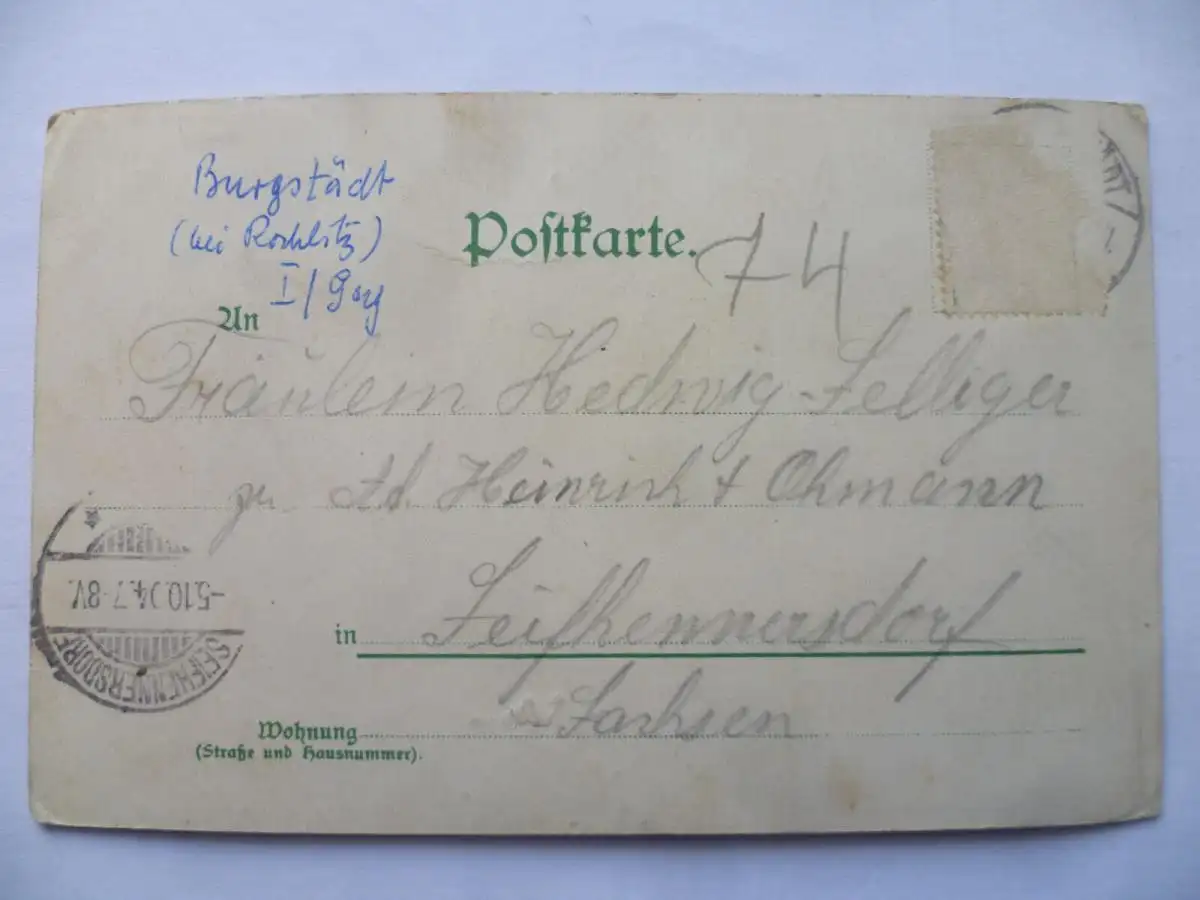 Burgstädt
(bei Rochlitz)
I/
Postkarte.
74
An
Fräulein Hedwig Selliger
Heinrich & Ohmann
in Seifhennersdorf
Sachsen
Wohnung
(Straße und Hausnummer).
-5.10.04.7-8V.
SEIFHENNERSDORF